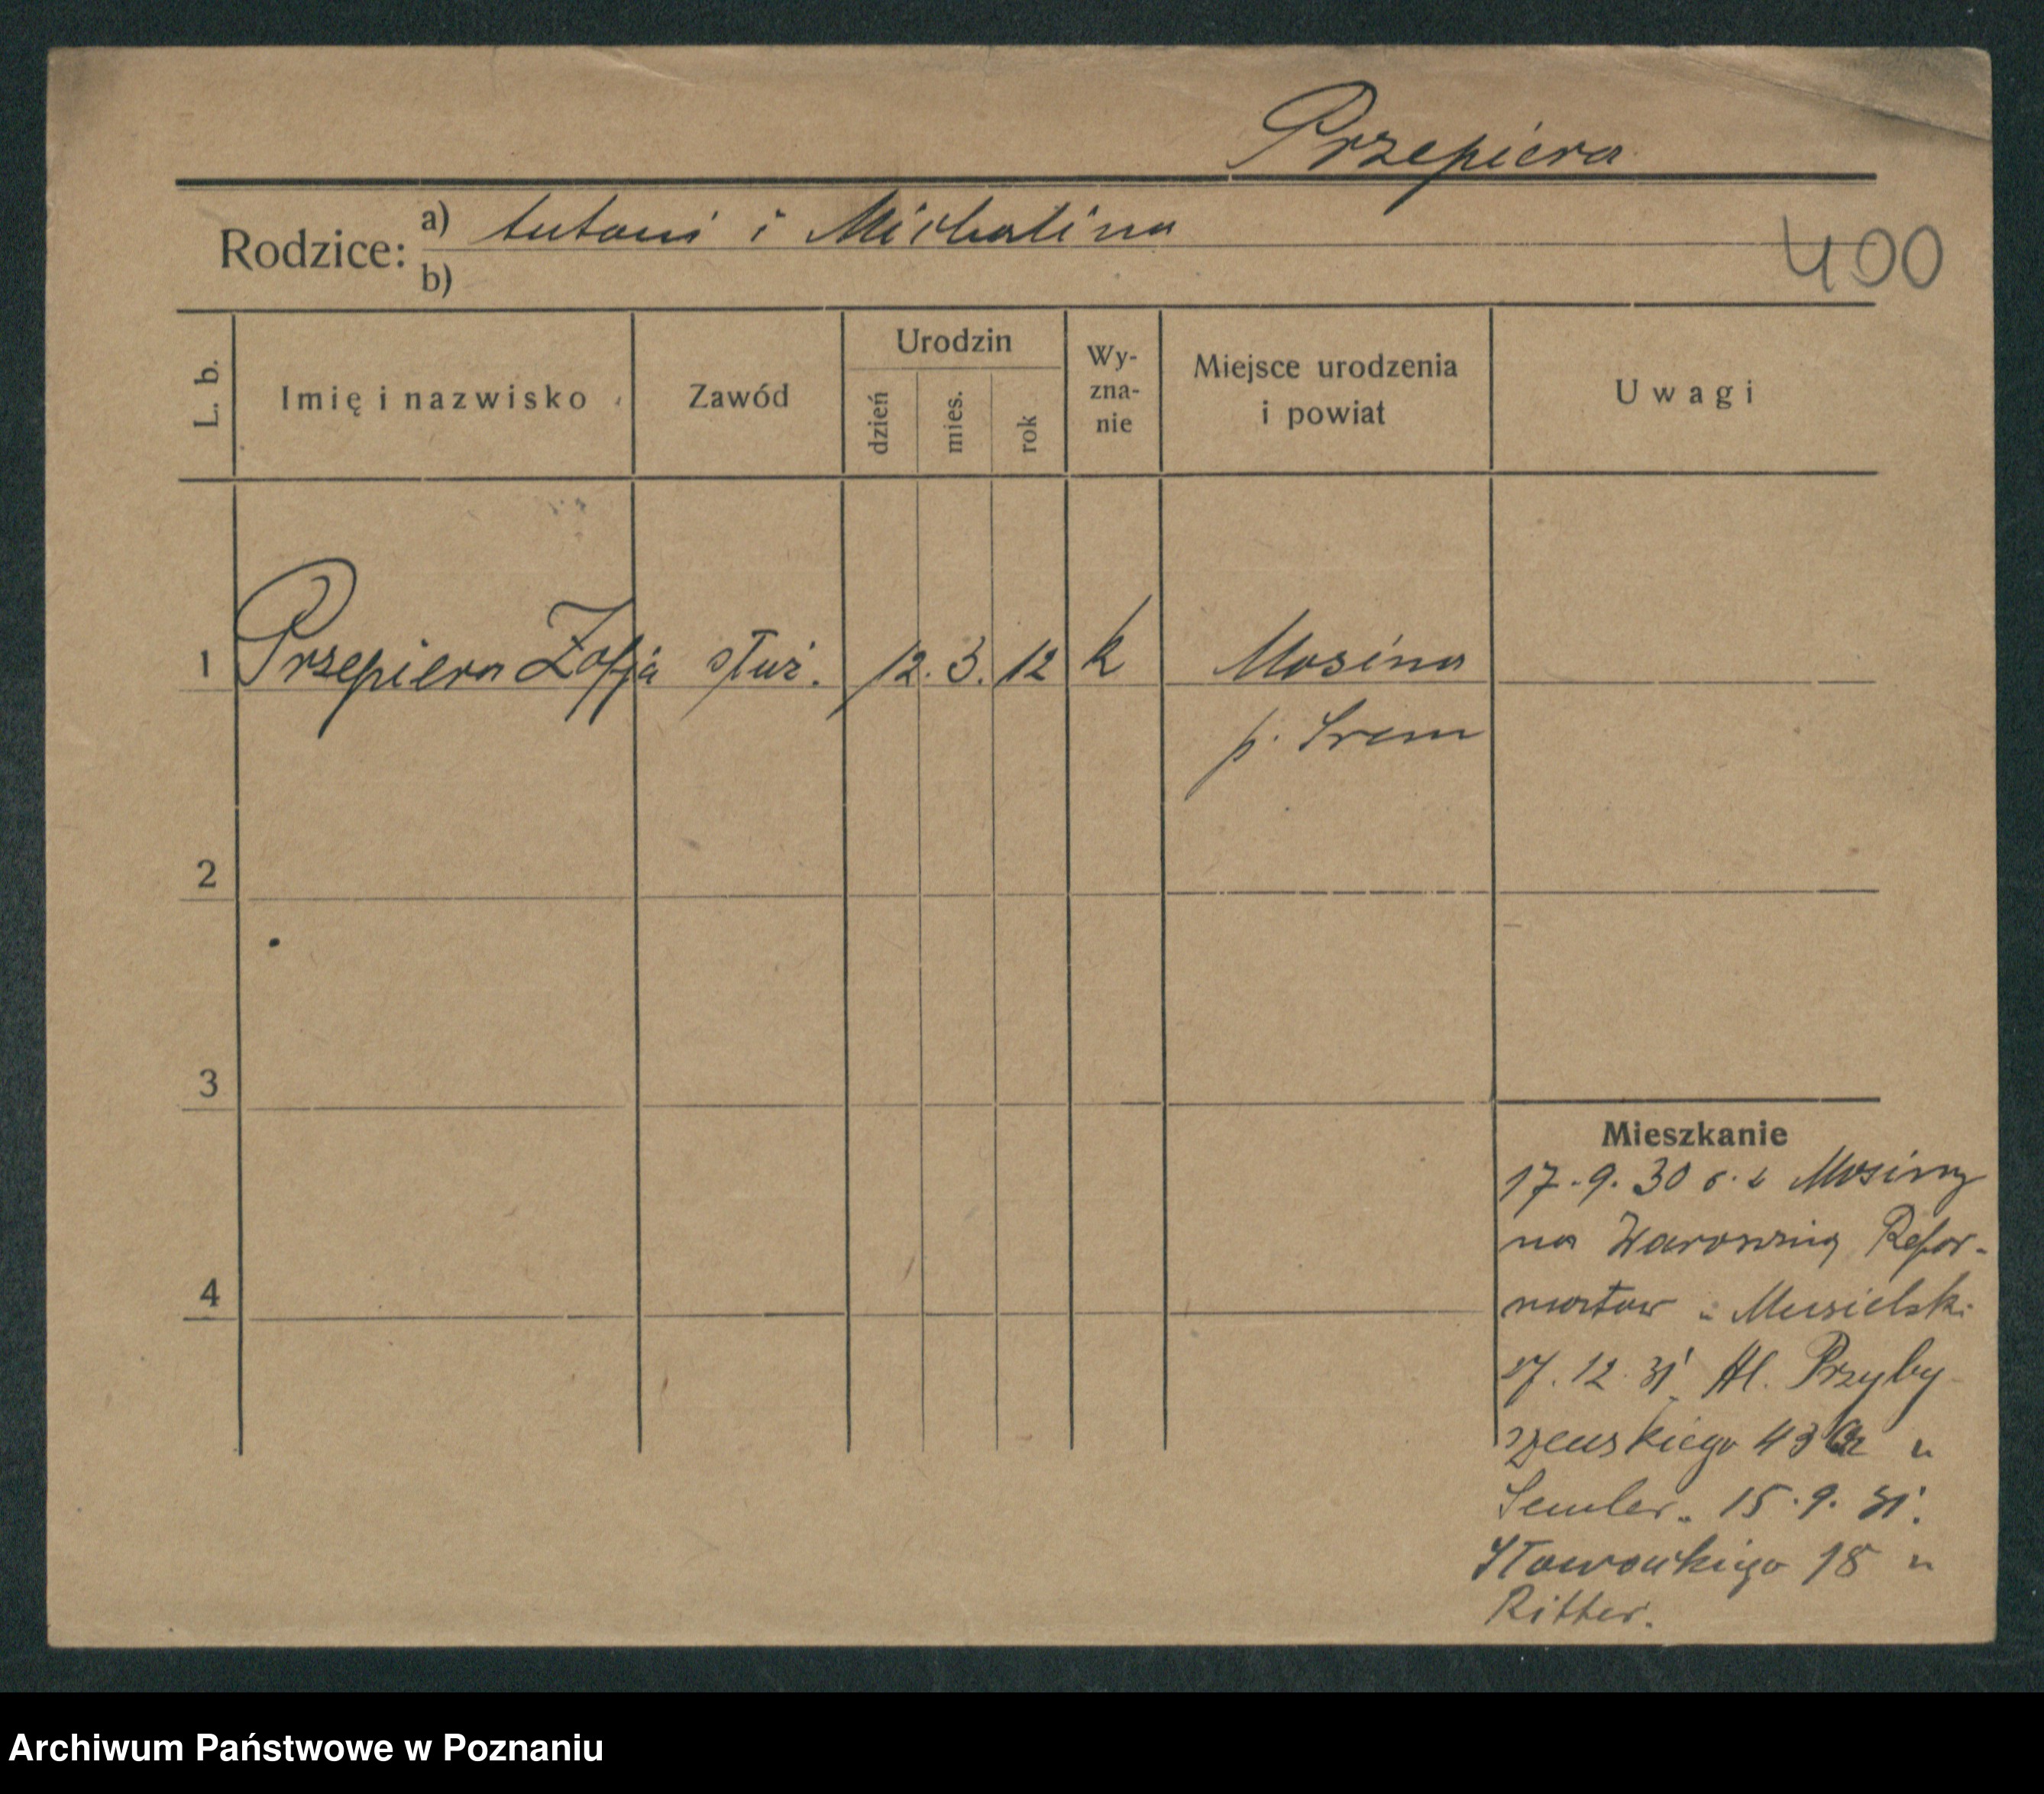 Przepiera
Rodzice: a) Antoni i Michalina
b)
400
L. b.
Imię i nazwisko
Zawód
Urodzin
dzień
mies.
rok
Wy-
zna-
nie
Miejsce urodzenia
i powiat
Uwagi
1 Przepiera Zofja służ. 12. 3. 12 k Mosina
p. Śrem
2
3
4
Mieszkanie
17.9.30 r. z Mosiny
na Warownią Refor-
matów u Musielski
27.12.31. Al. Przyby
szewskiego 43 u
Semler. 15.9.31.
Słowackiego 18 u
Ritter.
Archiwum Państwowe w Poznaniu